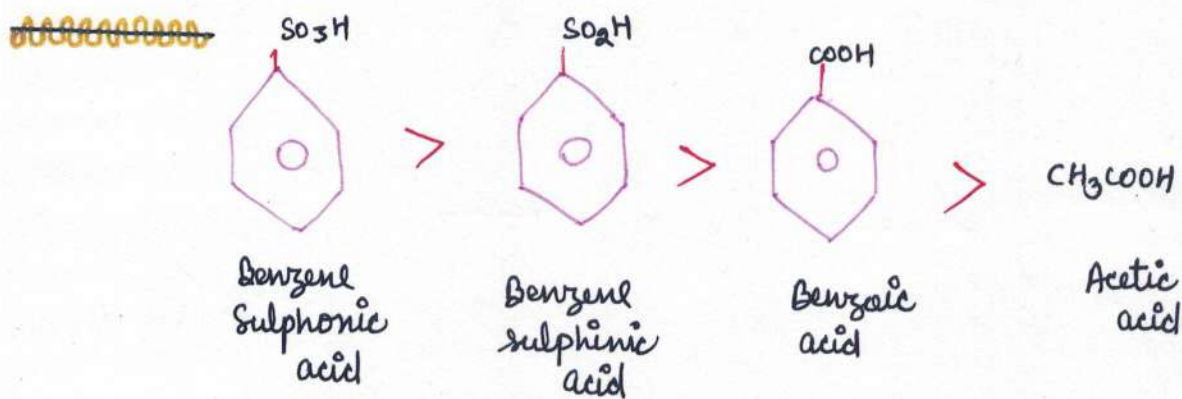 SO3H
SO2H
COOH
>
>
>
CH3COOH
Benzene
Sulphonic
acid
Benzene
sulphinic
acid
Benzoic
acid
Acetic
acid